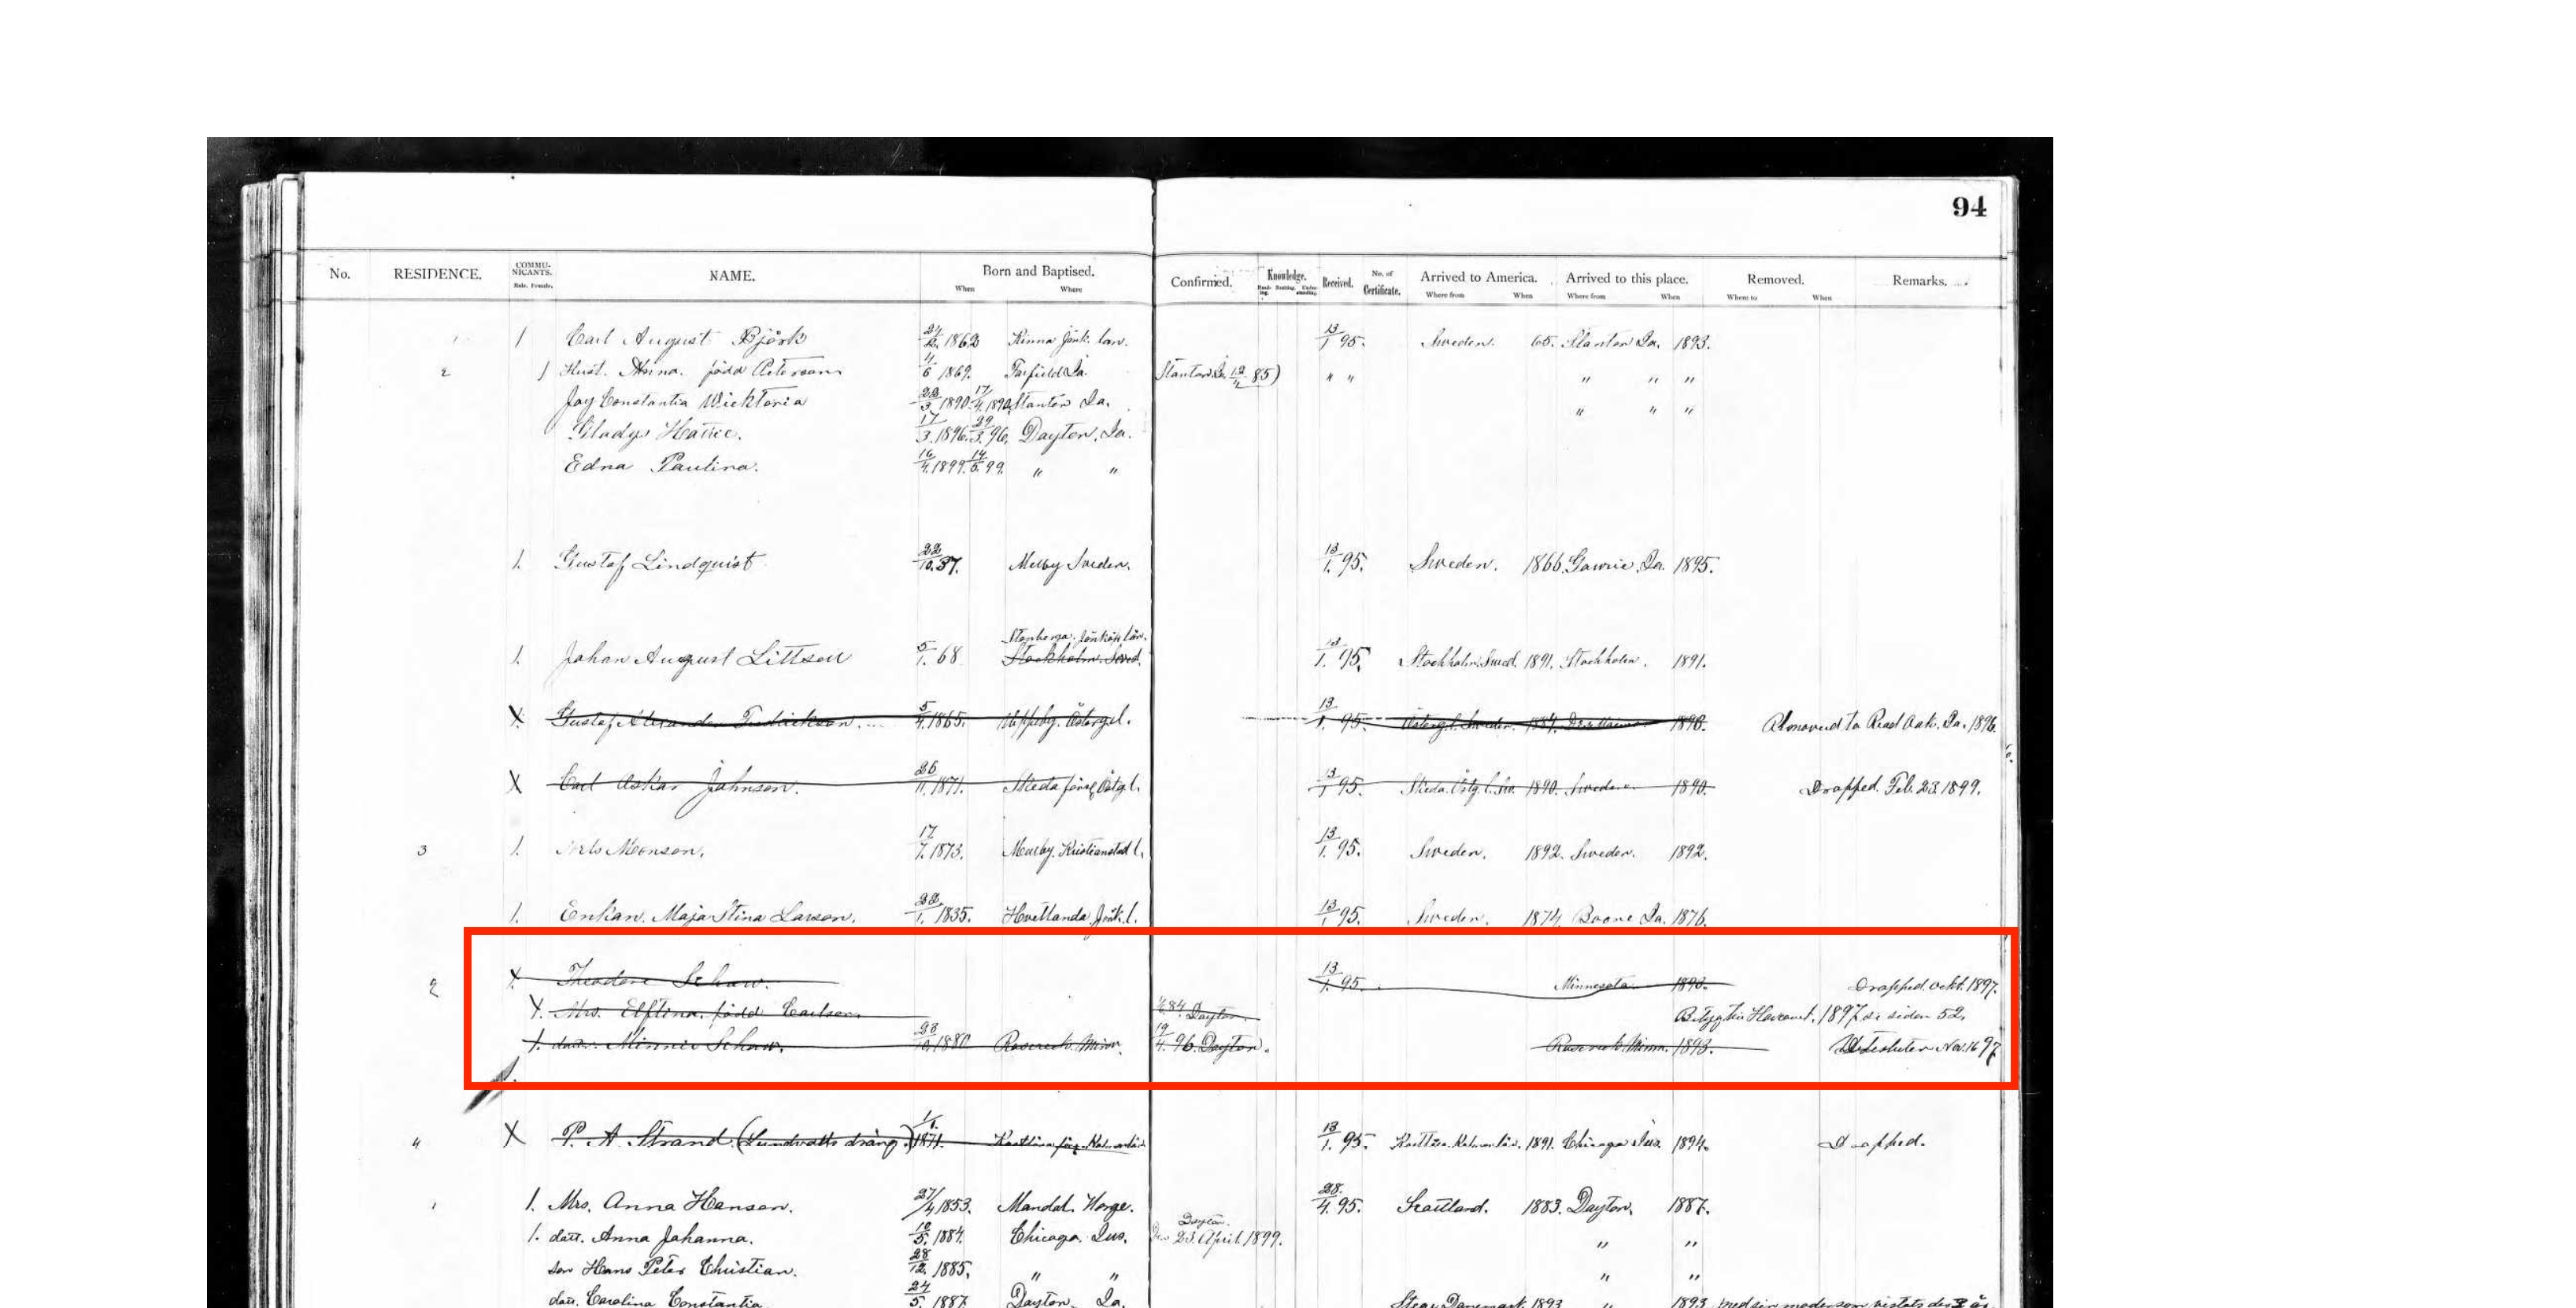 94
No. RESIDENCE. COMMU-NICANTS. Male. Female. NAME. Born and Baptised. When Where Confirmed. Knowledge. Received. No. of Certificate. Arrived to America. Where from When Arrived to this place. Where from When Removed. Where to When Remarks.
1 Carl August Björk 1862 Kinna Jönk. län. 13/1 95. Sweden. Stanton Ia. 1893.
2 1 Hust. Anna. född Peterson 4/6 1869. Fairfield Ia. Stanton Ia. 85) " " " " "
Jay Constantia Wicktoria 22/3 1890 17/4 1890 Stanton Ia. " " "
Gladys Hattie. 17/3. 1896. 29/3. 96. Dayton, Ia.
Edna Paulina. 16/4. 1899. 14/5. 99. " "
1. Gustaf Lindquist 22/10. 37. Melby Sweden. 13/1. 95. Sweden. 1866. Gowrie, Ia. 1895.
Stenberga. Jönköp. län.
1. Johan August Littson 5/1. 68 Stockholm. Swed. 13/1. 95. Stockholm. Swed. 1891. Stockholm. 1891.
X. Gustaf Alexander Fredrickson 1865. Östergl. 13/1. 95. Östergl. Sweden. 1884. Des Moines 1890. Removed to Read Oak. Ia. 1896.
X Carl Oskar Johnson. 26/11. 1871. Skeda förs. Östg. l. 13/1 95. Skeda. Östg. l. Sv. 1890. Sweden. 1890. Dropped. Feb. 23. 1899.
3 1. Nels Monson. 17/7. 1873. Kristianstad l. 13/1. 95. Sweden. 1892. Sweden. 1892.
1. Enkan. Maja Stina Larson. 22/1. 1835. Hvetlanda. Jönk. l. 13/1 95. Sweden. 1874. Boone Ia. 1876.
2 X. Theodore Schaw. 13/1. 95. Minnesota. 1893. Dropped. Ockt. 1897.
X. Mrs. Elftina. född Carlson. 84. Dayton Harcourt. 1897. se sidan 52.
1. datt. Minnie Schaw. 28/10 1880 Minn. 19/4. 96. Dayton. Minn. 1893. Utesluten Nov. 16 97
4 X P. A. Strand. (Lundvalls dräng.) 1871. 13/1. 95. Kalmar län. 1891. Chicago Ills. 1894. Dropped.
1 1. Mrs. Anna Hanson. 27/4 1853. Mandal. Norge. 28/4. 95. Scottland. 1883. Dayton. 1887.
Dayton.
1. datt. Anna Johanna. 10/5. 1884. Chicago. Ills. 23. April. 1899. " "
son Hans Peter Christian. 28/12. 1885. " " " "
datt. Carolina Constantia 24/5. 1887. Dayton. Ia. Danemark. 1893. " 1893. med sin moder som vistats der